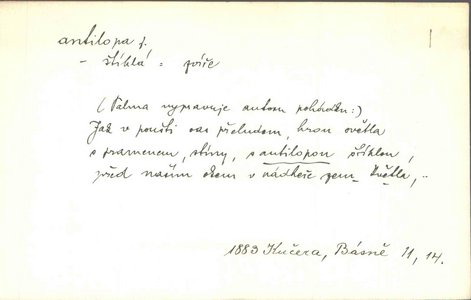 antilopa f.
- štíhlá : zvíře
(Palma vypravuje autoru pohádku:)
Jak v poušti vás přeludem, hrou světla
s pramenem, stíny, s antilopou štíhlou,
před naším okem v nádheře zem květla, ..
1883 Kučera, Básně II, 14.